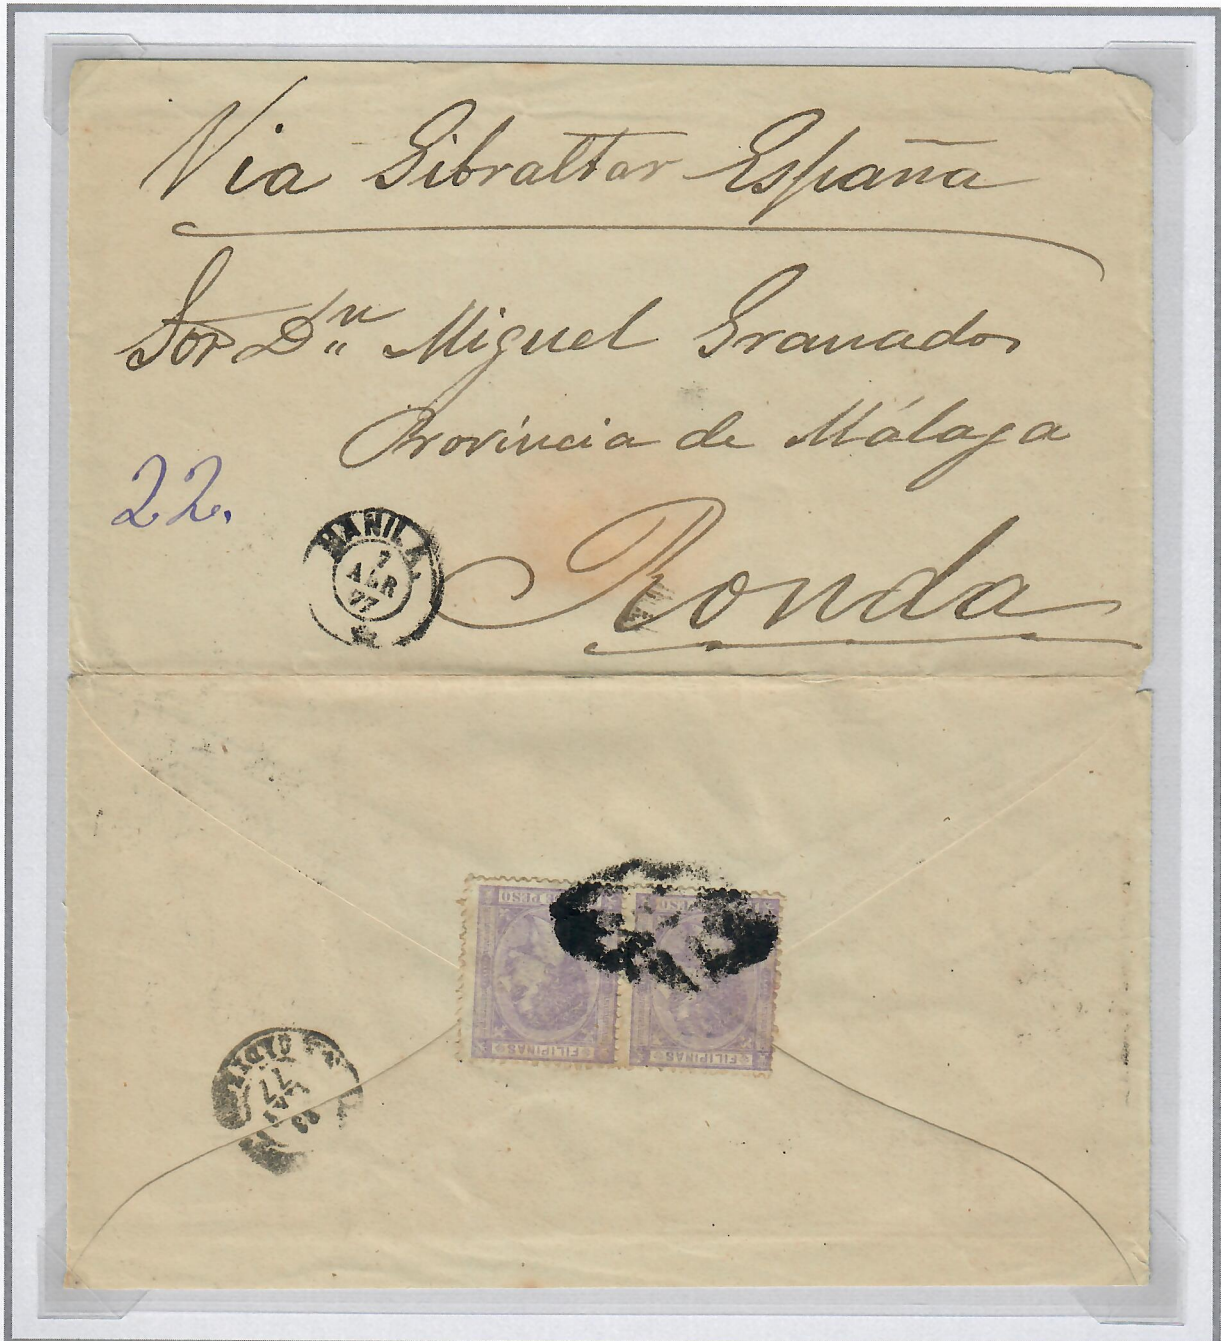 Via Gibraltar España
Sor Dn Miguel Granados
Provincia de Málaga
22.
Ronda
MANILA.
7
ABR
77
PESO PESO
FILIPINAS FILIPINAS
23
77